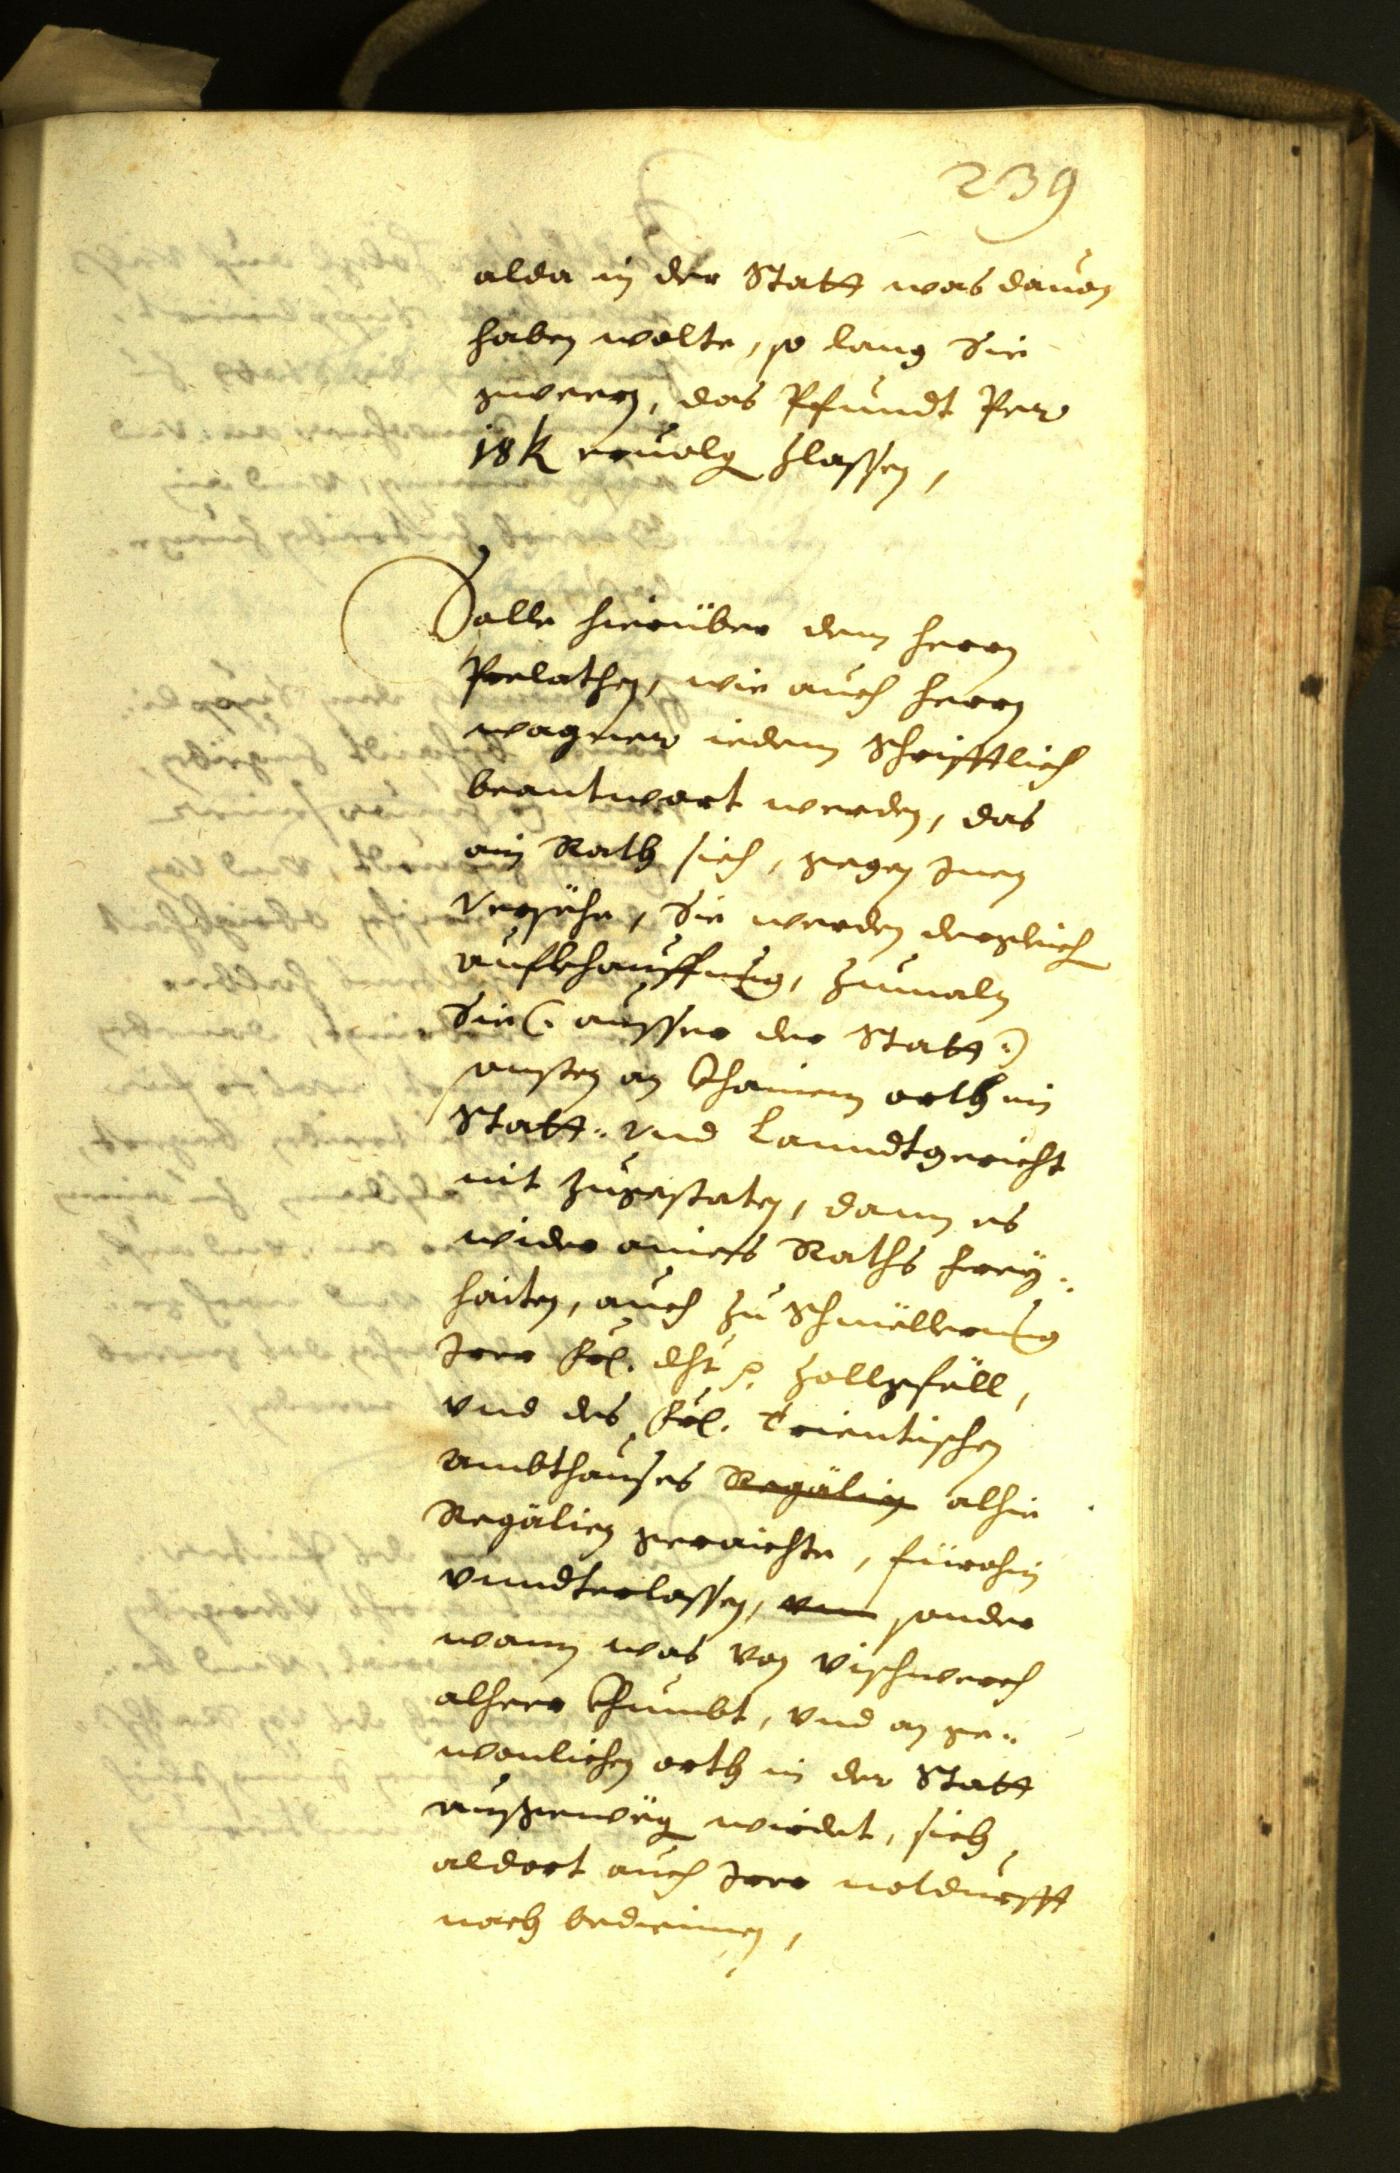 239
alda in der Statt was dauon
haben wolte, so lang Sie
gweern, das Pfundt Per
18 k eruolg zlassen,
Solle hierüber dem herrn
Prelathen, wie auch herrn
wagner iedem Schrifftlich
beantwort werden, das
ain Rath sich, gegen Inen
versehe, Sie werden dergleich
aufkhauffung, zumaln
Sie (: ausser der Statt :)
sonsten an khainem orth in
Statt: vnd Lanndtgericht
nit zugestaten, dann es
wider aines Raths frey:
haiten, auch zu Schmellerung
Irer Frl. dht zollgfell,
vnd des Frl. Trientischen
ambthauses Regälien alhie
Regälien geraichte, fürohin
vnndterlassen, sonder
wann was von vischwerch
alheer khumbt, vnd an ge:
wonlichen orth in der Statt
außgewëg wirdet, sich
aldort auch Irer notdurfft
nach bedienen,